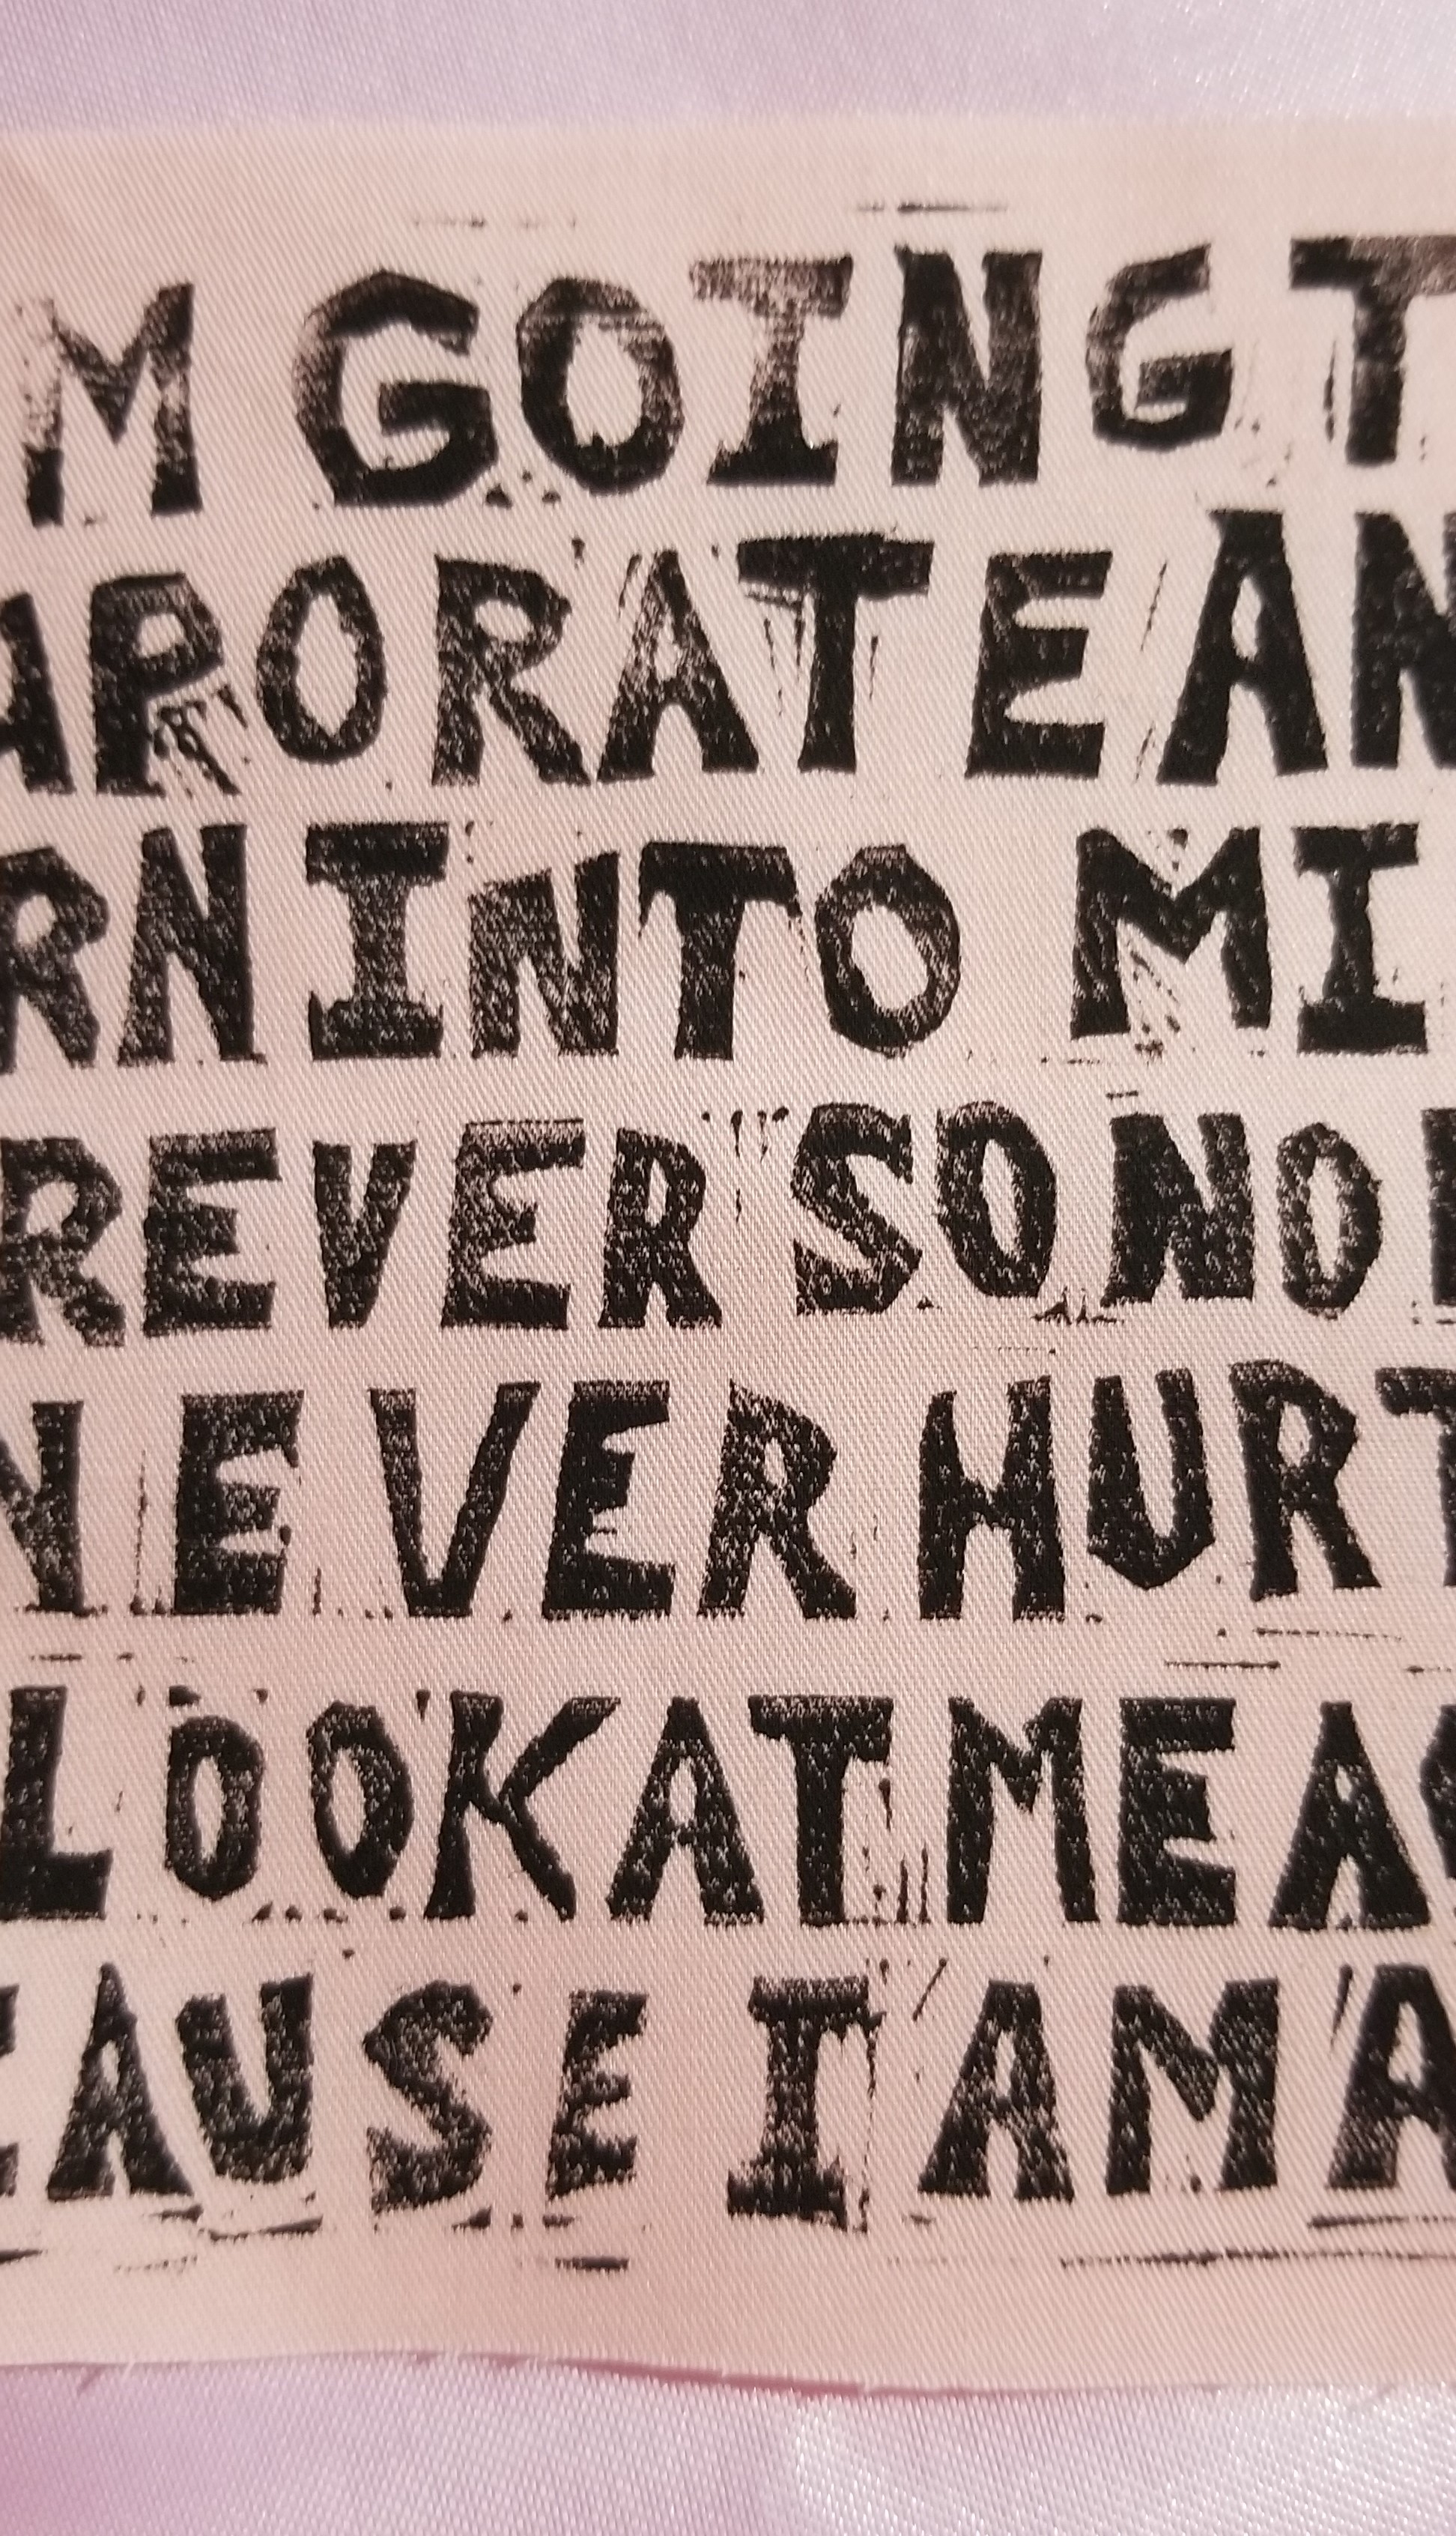 M GOING T
APORATE AN
RN INTO MI
REVER SO NO
NEVER HURT
LOOK AT ME AG
EAUSE I AM A